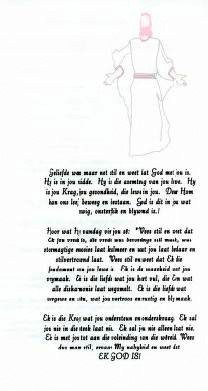 Geliefde wees maar net stil en weet dat God met ou is.
Hy is in jou midde. Hy is die asemteug van jou lewe. Hy
is jou Krag, jou gesondheid, die lewe in jou. Deur Hom
kan ons leef beweeg en bestaan. God is dit in jou wat
ewig, onsterflik en blywend is!
Hoor wat Hy vandag vir jou sê: "Wees stil en weet dat
Ek jou vrede is, die vrede wat
stormagtige moeites laat kalmeer en wat jou laat bedaar en
stilvertroued laat. Wees stil en weet dat Ek die
fondament van jou lewe is. Ek is die waarheid wat jou
vrymaak. Ek is die liefde wat jou hart vul, die Een wat
alle disharmonie laat wegsmelt. Ek is die liefde wat
vergewe en wat jou vertroos en rustig en bly maak.
Ek is die Krag wat jou ondersteun en onderskraag. Ek sal
jou nie in die steek laat nie. Ek sal jou nie alleen laat nie.
Ek is met jou tot aan die voleinding van die wêreld. Wees
dus maar stil, ervaar My nabyheid en weet dat
EK GOD IS!